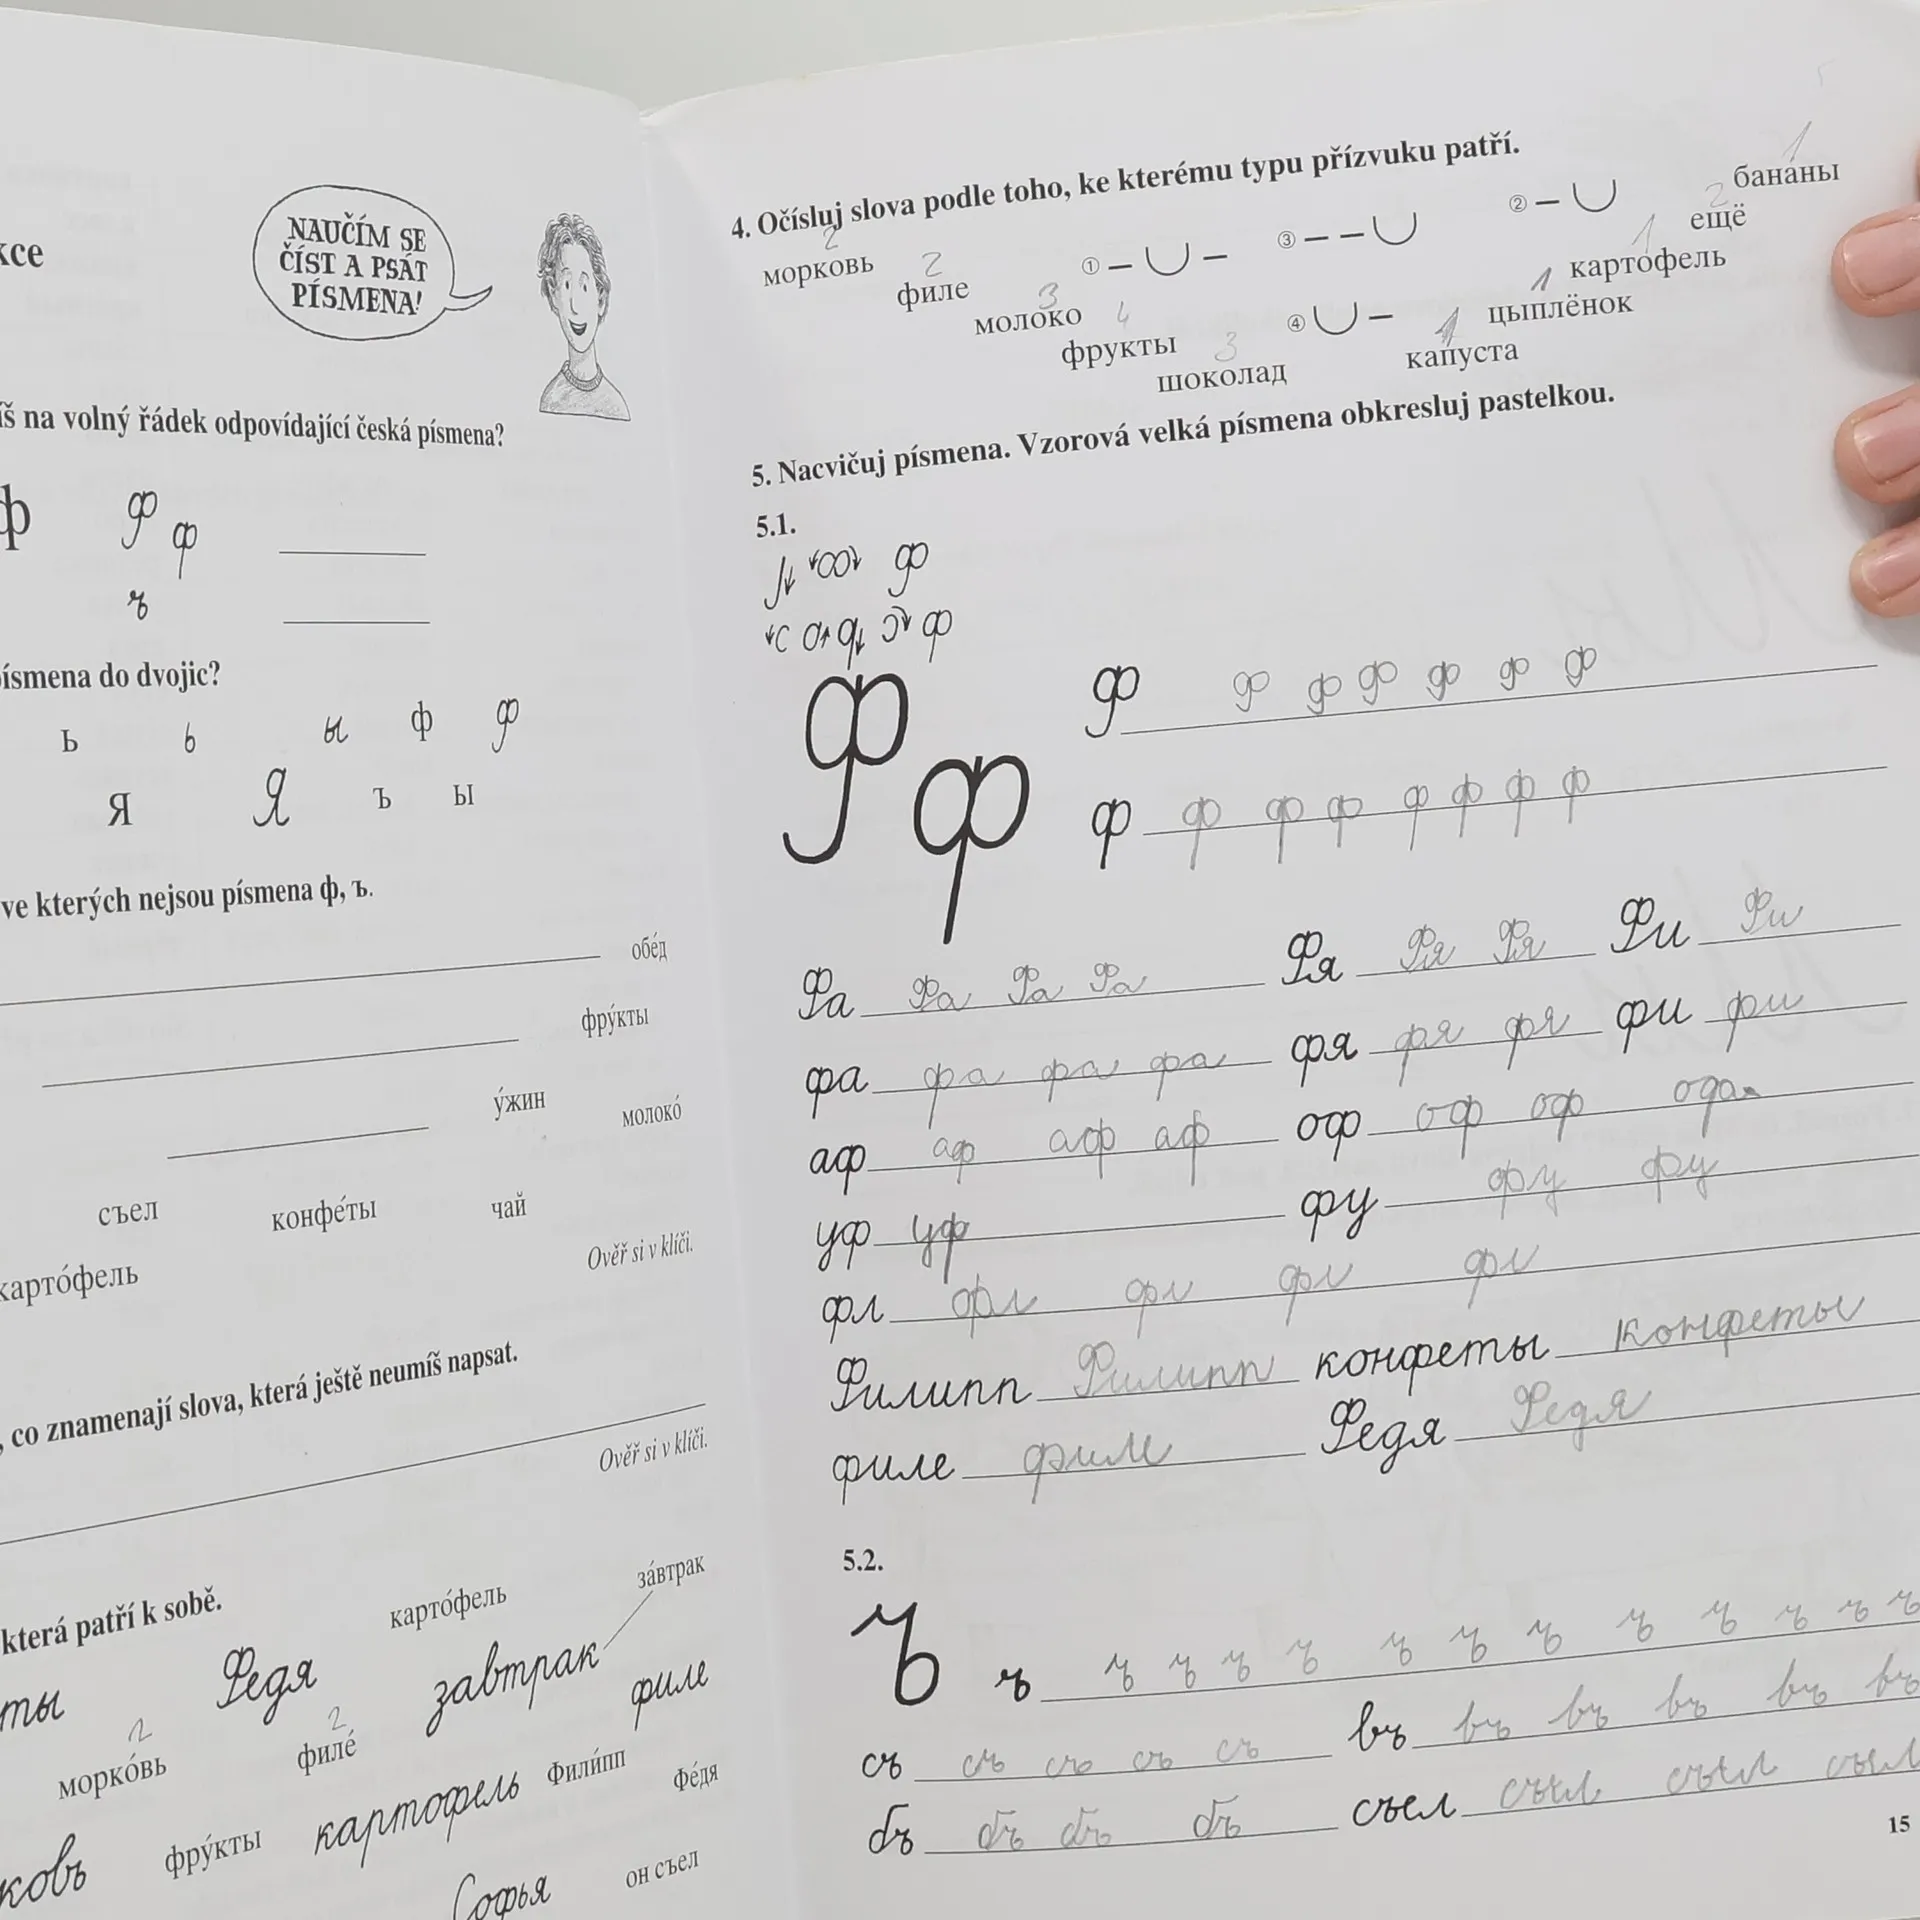 NAUČÍM SE
ČÍST A PSÁT
PÍSMENA!
na volný řádek odpovídající česká písmena?
ф Ф ф
ъ
do dvojic?
ь ь ы ф Ф
Я Я ъ ы
ve kterých nejsou písmena ф, ъ.
обе́д
фру́кты
у́жин молоко́
съел конфе́ты чай
карто́фель
Ověř si v klíči.
co znamenají slova, která ještě neumíš napsat.
Ověř si v klíči.
která patří k sobě.
карто́фель за́втрак
Федя завтрак
морко́вь 2 филе́ 2 филе
картофель Фили́пп Фе́дя
фру́кты
Софья он съел
4. Očísluj slova podle toho, ke kterému typu přízvuku patří.
① – ∪ – ③ – – ∪ ② – ∪
④ ∪ –
морковь 2
филе 2
молоко 3
фрукты 4
шоколад 3
капуста 1
цыплёнок 1
картофель 1
ещё 2
бананы 1
5. Nacvičuj písmena. Vzorová velká písmena obkresluj pastelkou.
5.1.
Ф
ф
Ф ф
Ф Ф Ф Ф Ф Ф Ф
ф ф ф ф ф ф ф ф
Фа Фа Фа Фа Фя Фя Фя Фи Фи
фа фа фа фа фя фя фя фи фи
аф аф аф аф оф оф оф
уф уф фу фу фу
фл фл фл фл фл
Филипп Филипп конфеты конфеты
филе филе Федя Федя
5.2.
ъ ъ ъ ъ ъ ъ ъ ъ ъ ъ ъ ъ ъ ъ
съ съ съ съ съ въ въ въ въ въ въ
бъ бъ бъ бъ съел съел съел съел
15